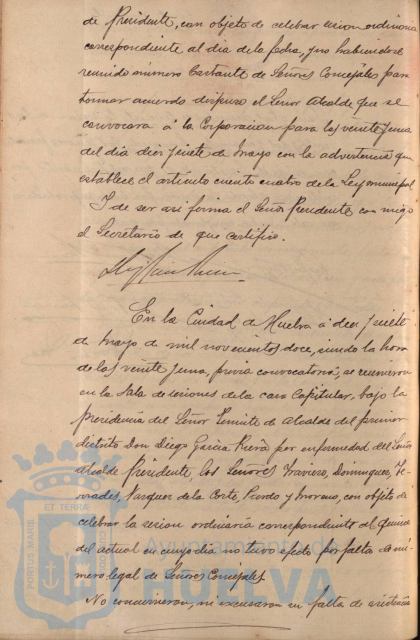 de Presidente, con objeto de celebrar sesion ordinaria
correspondiente al dia de la fecha, y no habiendose
reunido número bastante de Señores Concejales para
tomar acuerdo dispuso el Señor Alcalde que se
convocara á la Corporacion para las veinte y una
del dia diez y siete de Mayo con la advertencia que
establece el articulo ciento cuatro de la Ley municipal
Y de ser asi firma el Señor Presidente con migo
el Secretario de que certifico.
En la Ciudad de Huelva á diez y siete
de Mayo de mil novecientos doce, siendo la hora
de las veinte y una, previa convocatoria, se reunieron
en la Sala de sesiones de la casa Capitular, bajo la
presidencia del Señor Teniente de Alcalde del primer
distrito Don Diego Garcia por enfermedad del Señor
Alcalde Presidente, los Señores Traviero, Dominguez,
Vazquez de la Corte, Pardo y Moreno, con objeto de
celebrar la sesion ordinaria correspondiente al quince
del actual en cuyo dia no tuvo efecto por falta de nú-
mero legal de Señores Concejales
No concurrieron, ni excusaron su falta de asistencia
PORTUS MARIS
ET TERRÆ
Ayuntamiento de
HUELVA